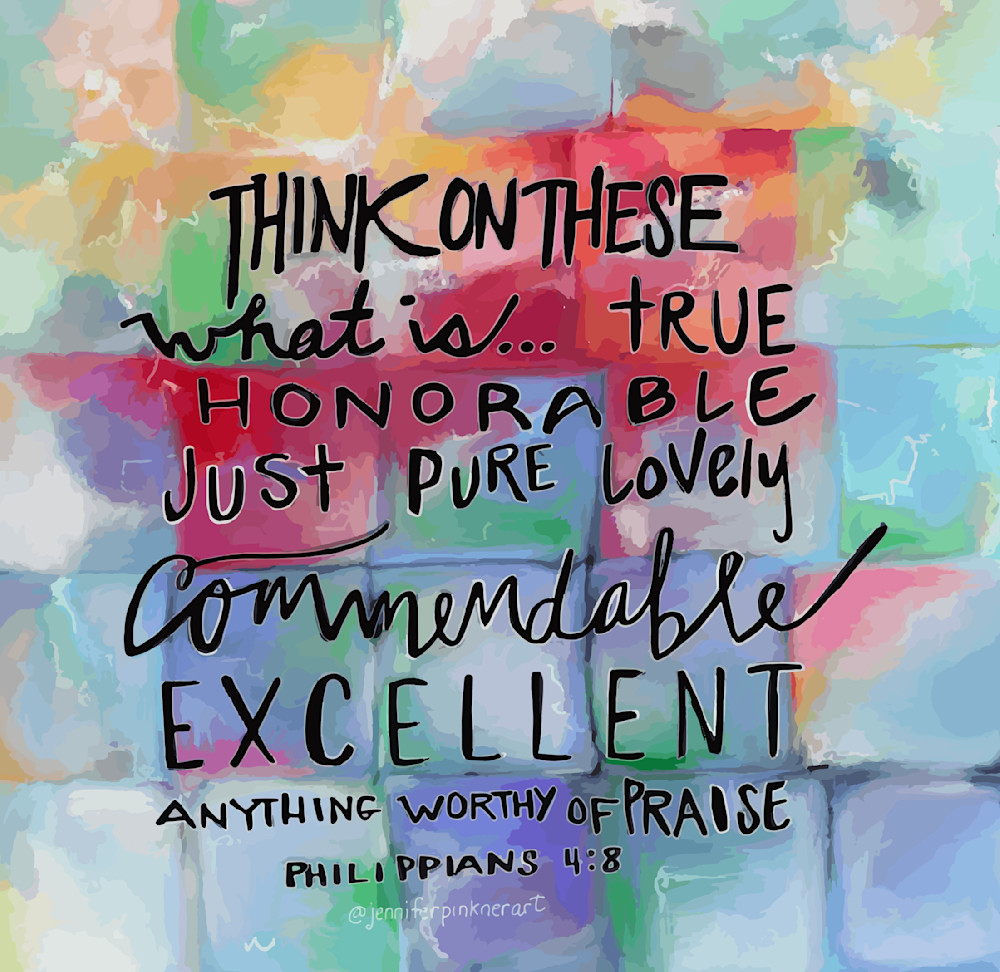 THINK ON THESE
what is... tRUE
HONORABLE
JUSt PURE LoVely
Commendable
EXCELLENT
ANYTHING WORTHY OF PRAISE
PHILIPPIANS 4:8
@jenniferpinknerart